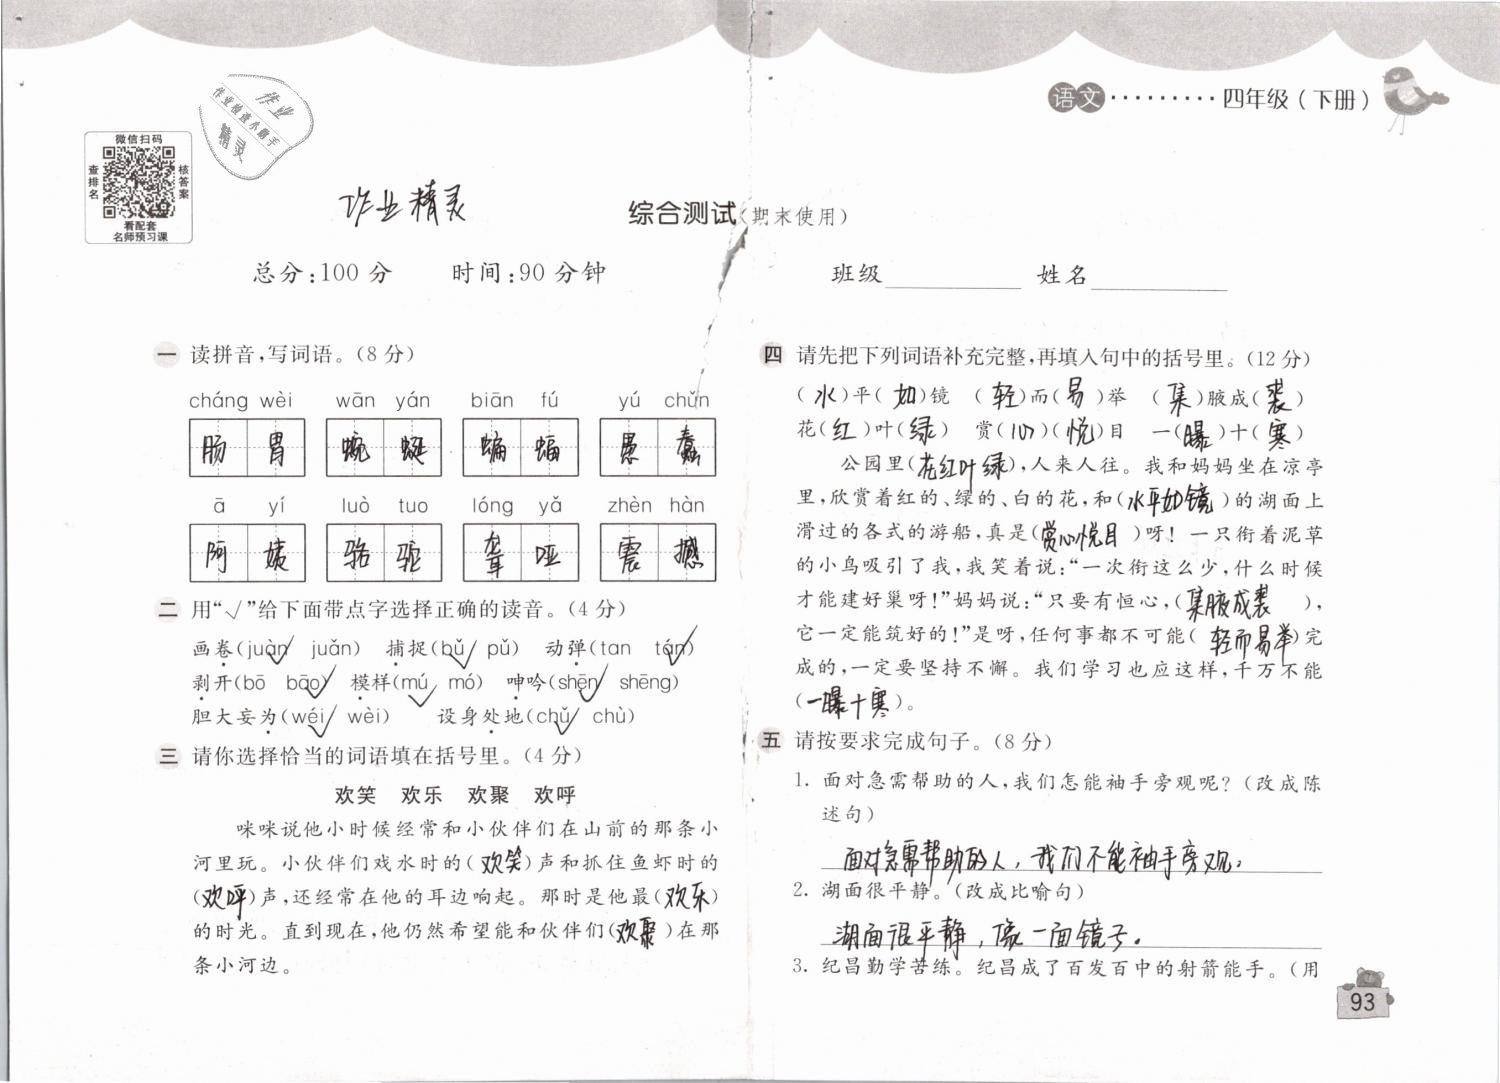 语文·········四年级(下册)
作业
作业检查小助手
精灵
微信扫码
查排名
核答案
看配套
名师预习课
作业精灵
综合测试(期末使用)
总分:100分 时间:90分钟
班级 姓名
一 读拼音,写词语。(8分)
cháng wèi wān yán biān fú yú chǔn
肠胃 蜿蜒 蝙蝠 愚蠢
ā yí luò tuo lóng yǎ zhèn hàn
阿姨 骆驼 聋哑 震撼
二 用“√”给下面带点字选择正确的读音。(4分)
画卷(juàn√ juǎn) 捕捉(bǔ√ pǔ) 动弹(tan tán√)
剥开(bō bāo√) 模样(mú√ mó) 呻吟(shēn√ shēng)
胆大妄为(wéi√ wèi) 设身处地(chǔ√ chù)
三 请你选择恰当的词语填在括号里。(4分)
欢笑 欢乐 欢聚 欢呼
咪咪说他小时候经常和小伙伴们在山前的那条小
河里玩。小伙伴们戏水时的(欢笑)声和抓住鱼虾时的
(欢呼)声,还经常在他的耳边响起。那时是他最(欢乐)
的时光。直到现在,他仍然希望能和伙伴们(欢聚)在那
条小河边。
四 请先把下列词语补充完整,再填入句中的括号里。(12分)
(水)平(如)镜 (轻)而(易)举 (集)腋成(裘)
花(红)叶(绿) 赏(心)(悦)目 一(曝)十(寒)
公园里(花红叶绿),人来人往。我和妈妈坐在凉亭
里,欣赏着红的、绿的、白的花,和(水平如镜)的湖面上
滑过的各式的游船,真是(赏心悦目)呀!一只衔着泥草
的小鸟吸引了我,我笑着说:“一次衔这么少,什么时候
才能建好巢呀!”妈妈说:“只要有恒心,(集腋成裘),
它一定能筑好的!”是呀,任何事都不可能(轻而易举)完
成的,一定要坚持不懈。我们学习也应这样,千万不能
(一曝十寒)。
五 请按要求完成句子。(8分)
1. 面对急需帮助的人,我们怎能袖手旁观呢?(改成陈
述句)
面对急需帮助的人,我们不能袖手旁观。
2. 湖面很平静。(改成比喻句)
湖面很平静,像一面镜子。
3. 纪昌勤学苦练。纪昌成了百发百中的射箭能手。(用
93